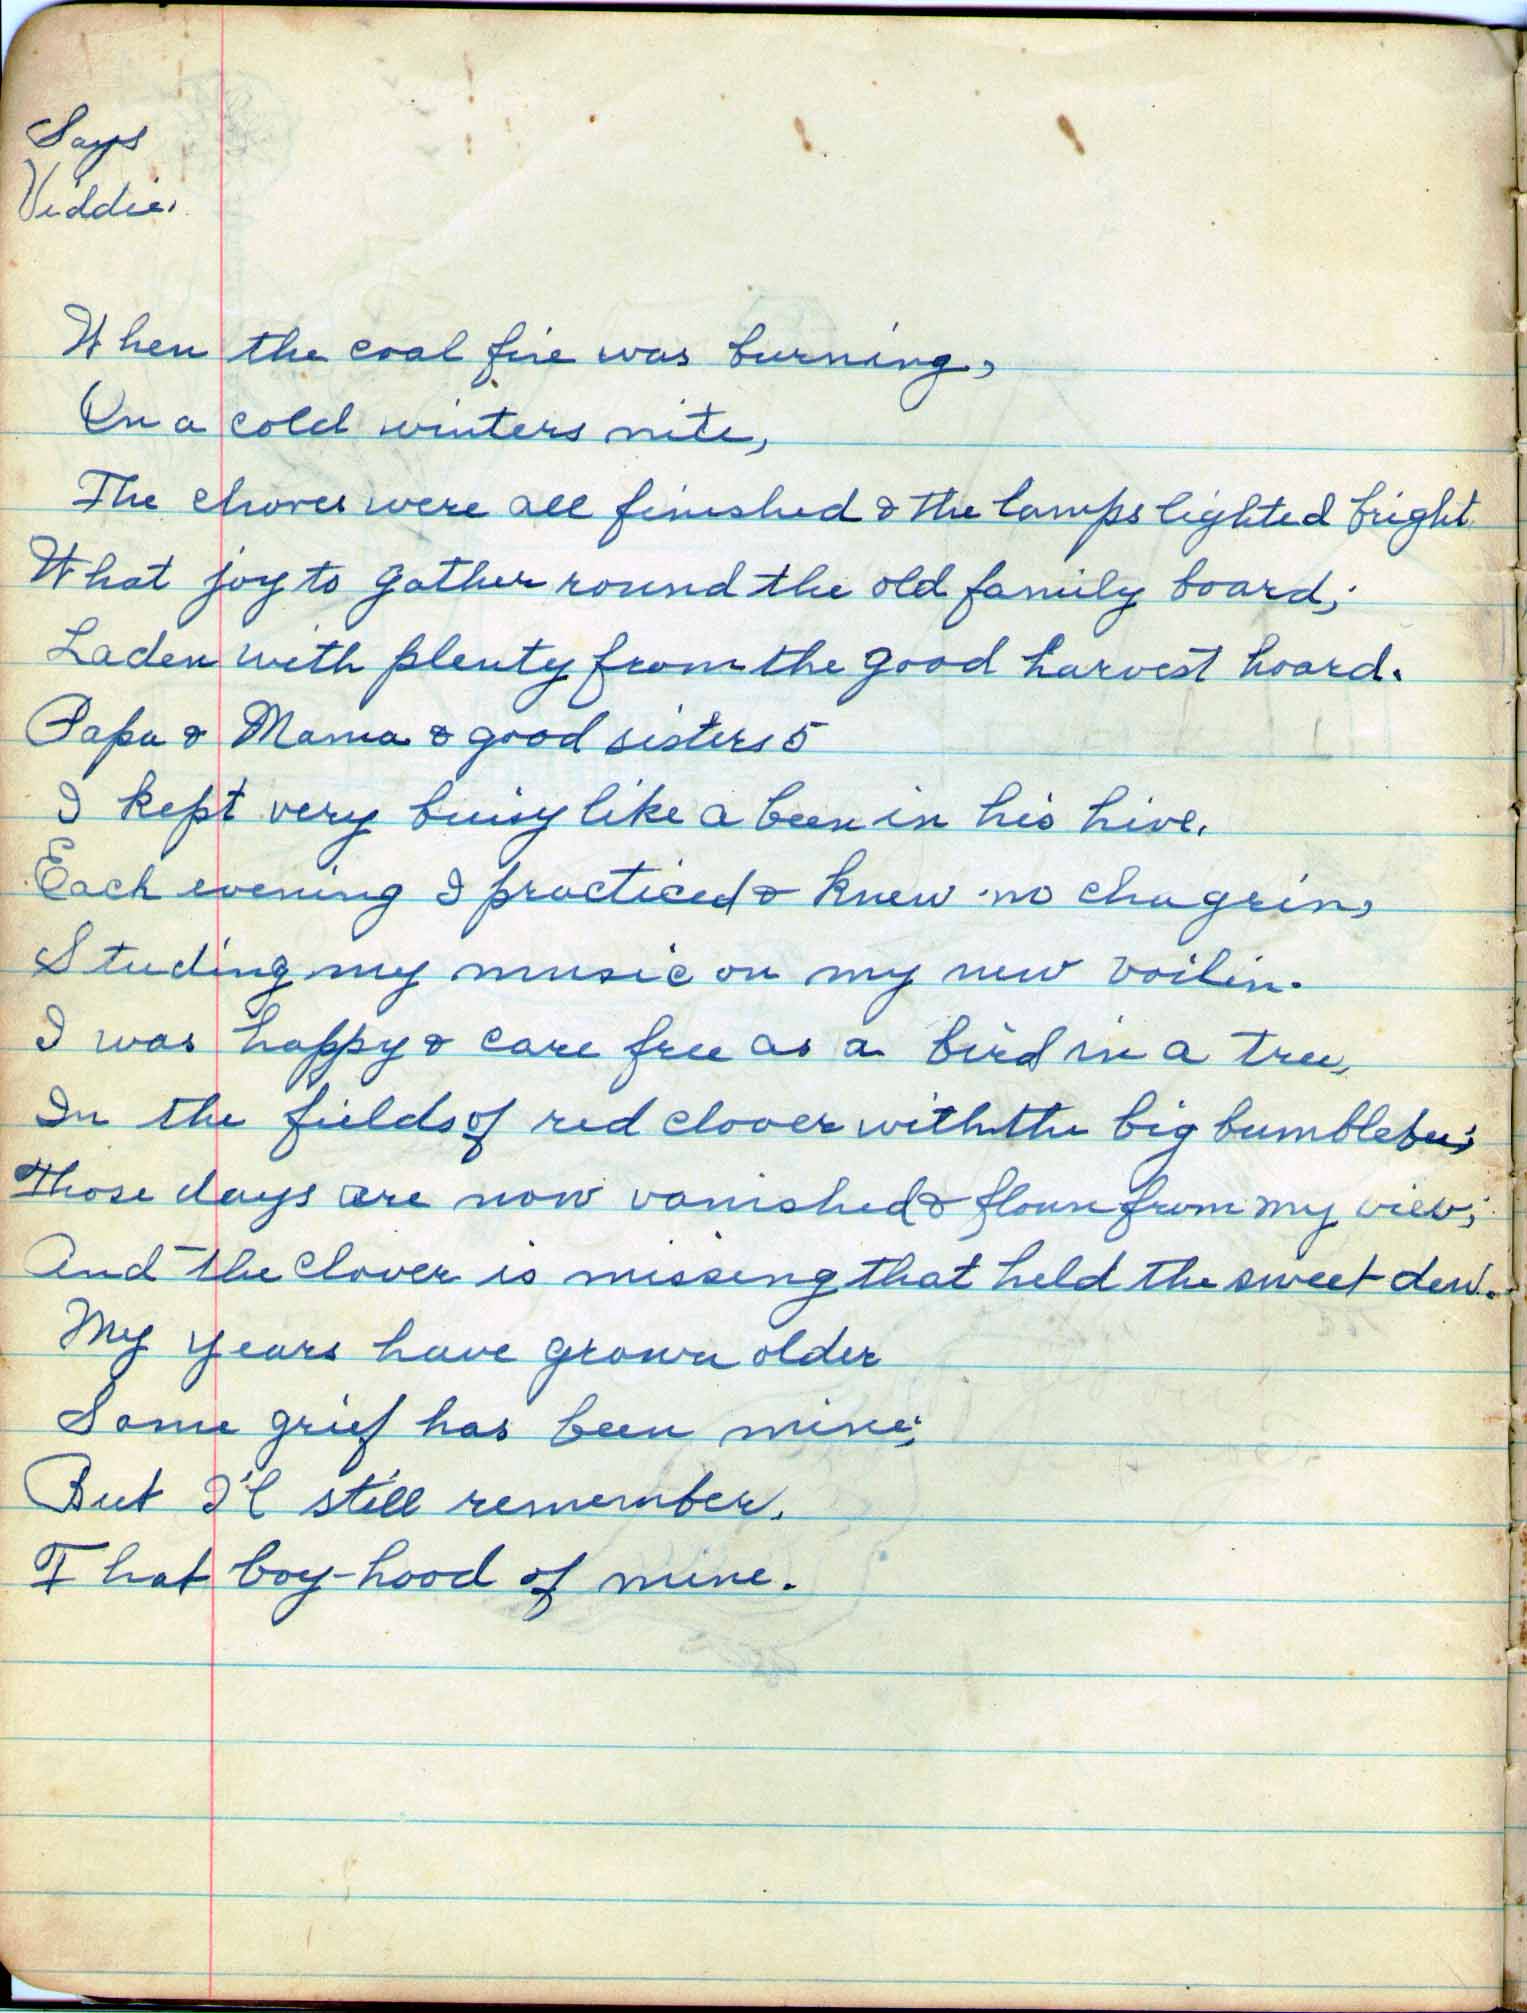 Says
Viddie.
When the coal fire was burning,
On a cold winters nite,
The chores were all finished & the lamps lighted bright
What joy to gather round the old family board;
Laden with plenty from the good harvest hoard.
Papa & Mama & good sisters 5
I kept very buisy like a been in his hive.
Each evening I practiced & knew no chagrin,
Studing my music on my new voilin.
I was happy & care free as a bird in a tree,
In the fields of red clover with the big bumblebee;
Those days are now vanished & flown from my view;
And the clover is missing that held the sweet dew.
My years have grown older
Some grief has been mine;
But I'l still remember.
That boy-hood of mine.